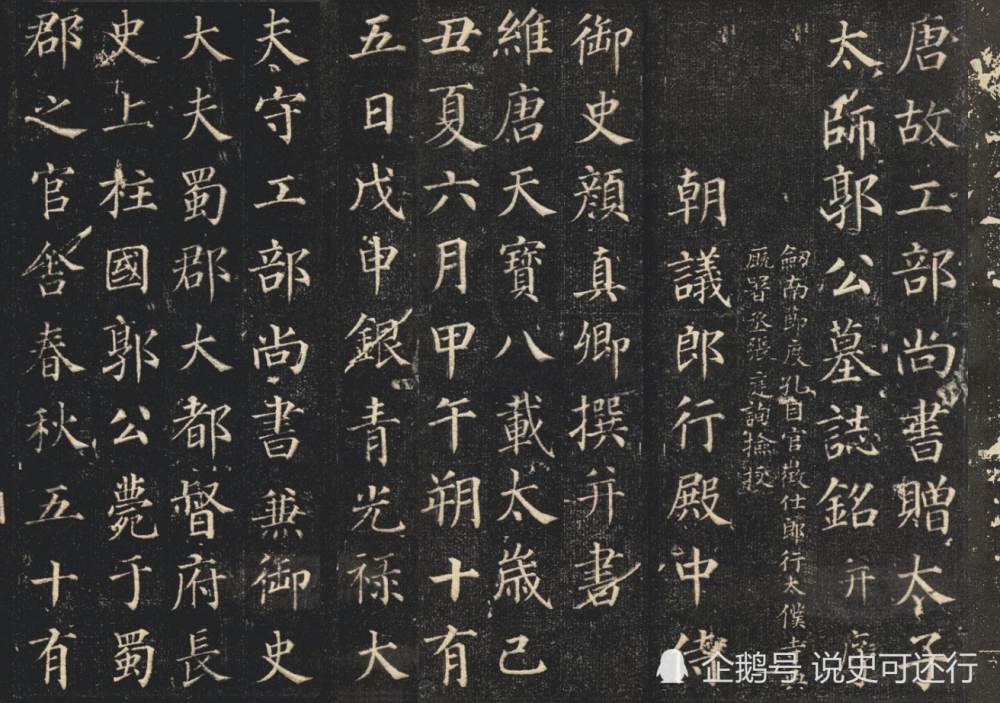 唐故工部尚書贈太子
太師郭公墓誌銘并序
劒南節度孔目官徵仕郎行太僕寺
廐署丞張庭詢撿挍
朝議郎行殿中侍
御史顔真卿撰并書
維唐天寶八載太歲己
丑夏六月甲午朔十有
五日戊申銀青光祿大
夫守工部尚書兼御史
大夫蜀郡大都督府長
史上柱國郭公薨于蜀
郡之官舍春秋五十有
企鹅号 说史可还行